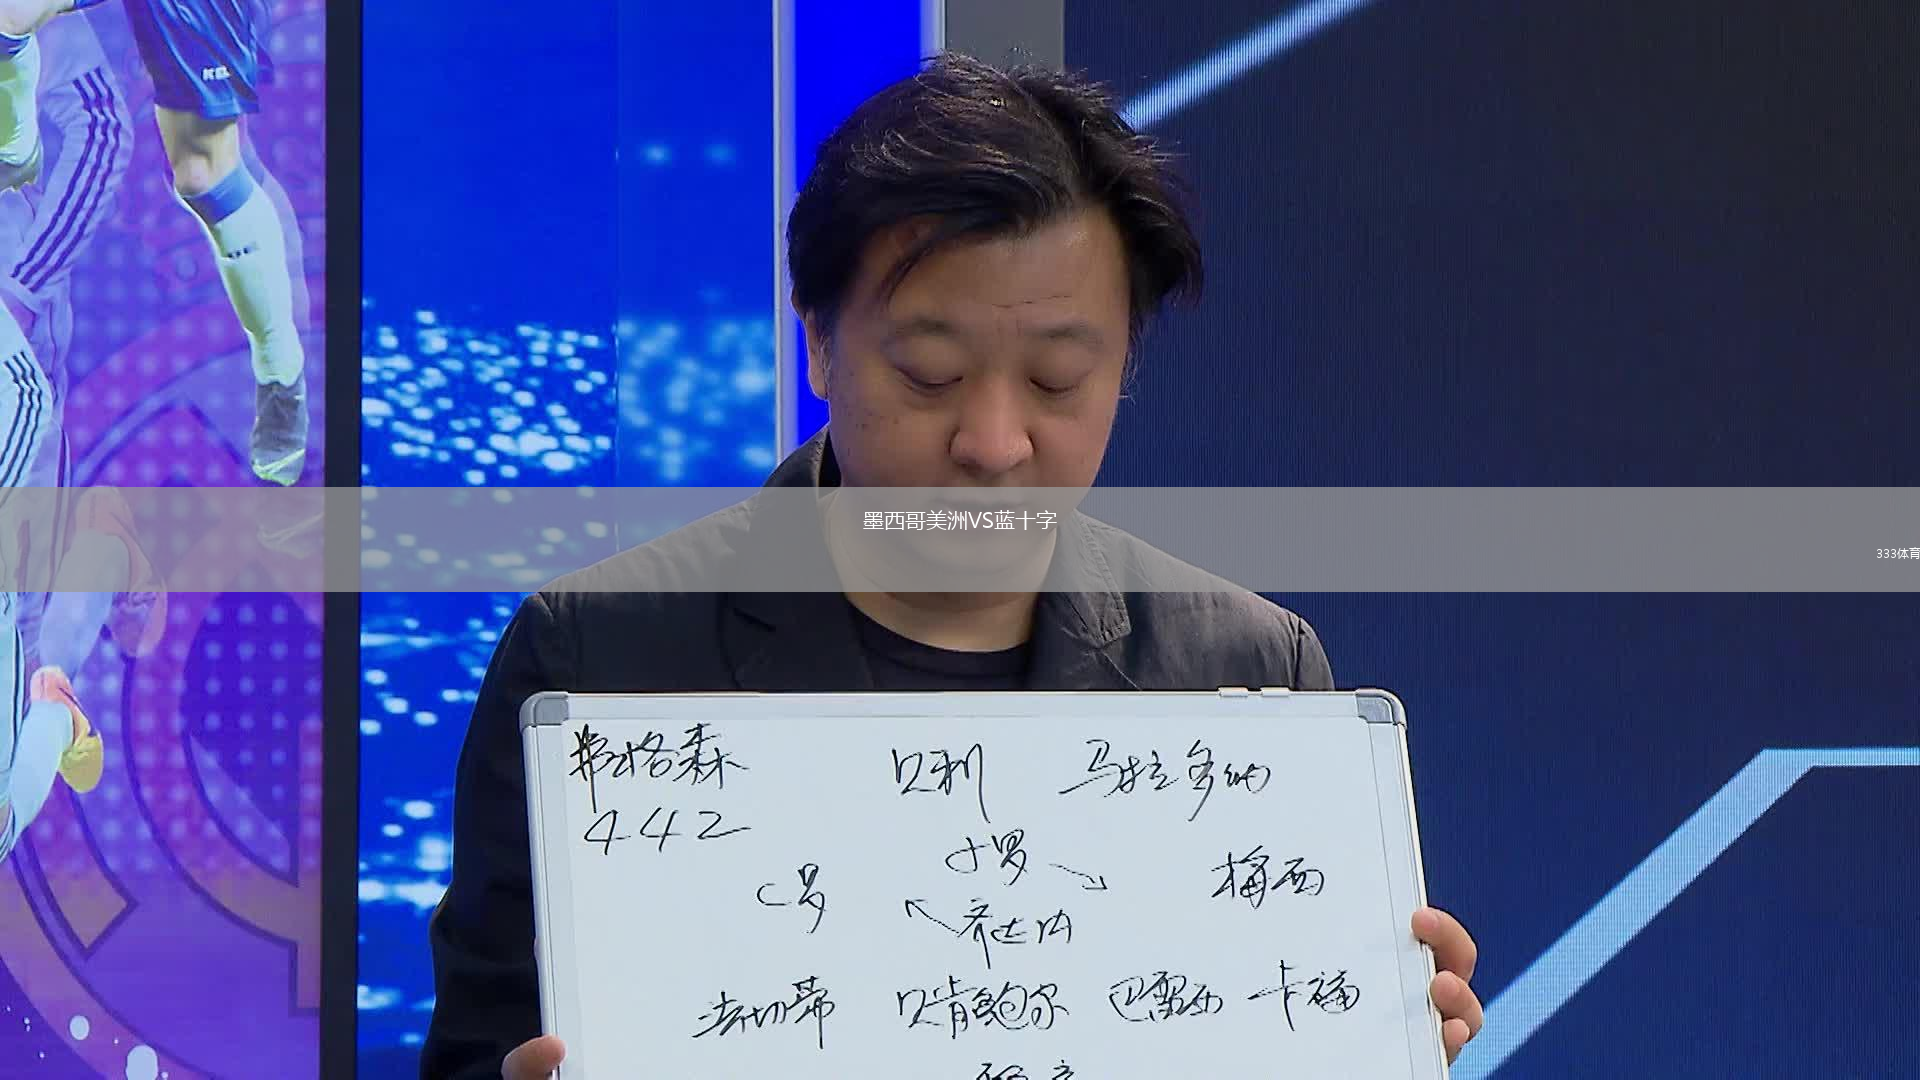 KEL
墨西哥美洲VS蓝十字
333体育
弗格森 贝利 马拉多纳
442
小罗
C罗 梅西
齐达内
法切蒂 贝肯鲍尔 巴雷西 卡福